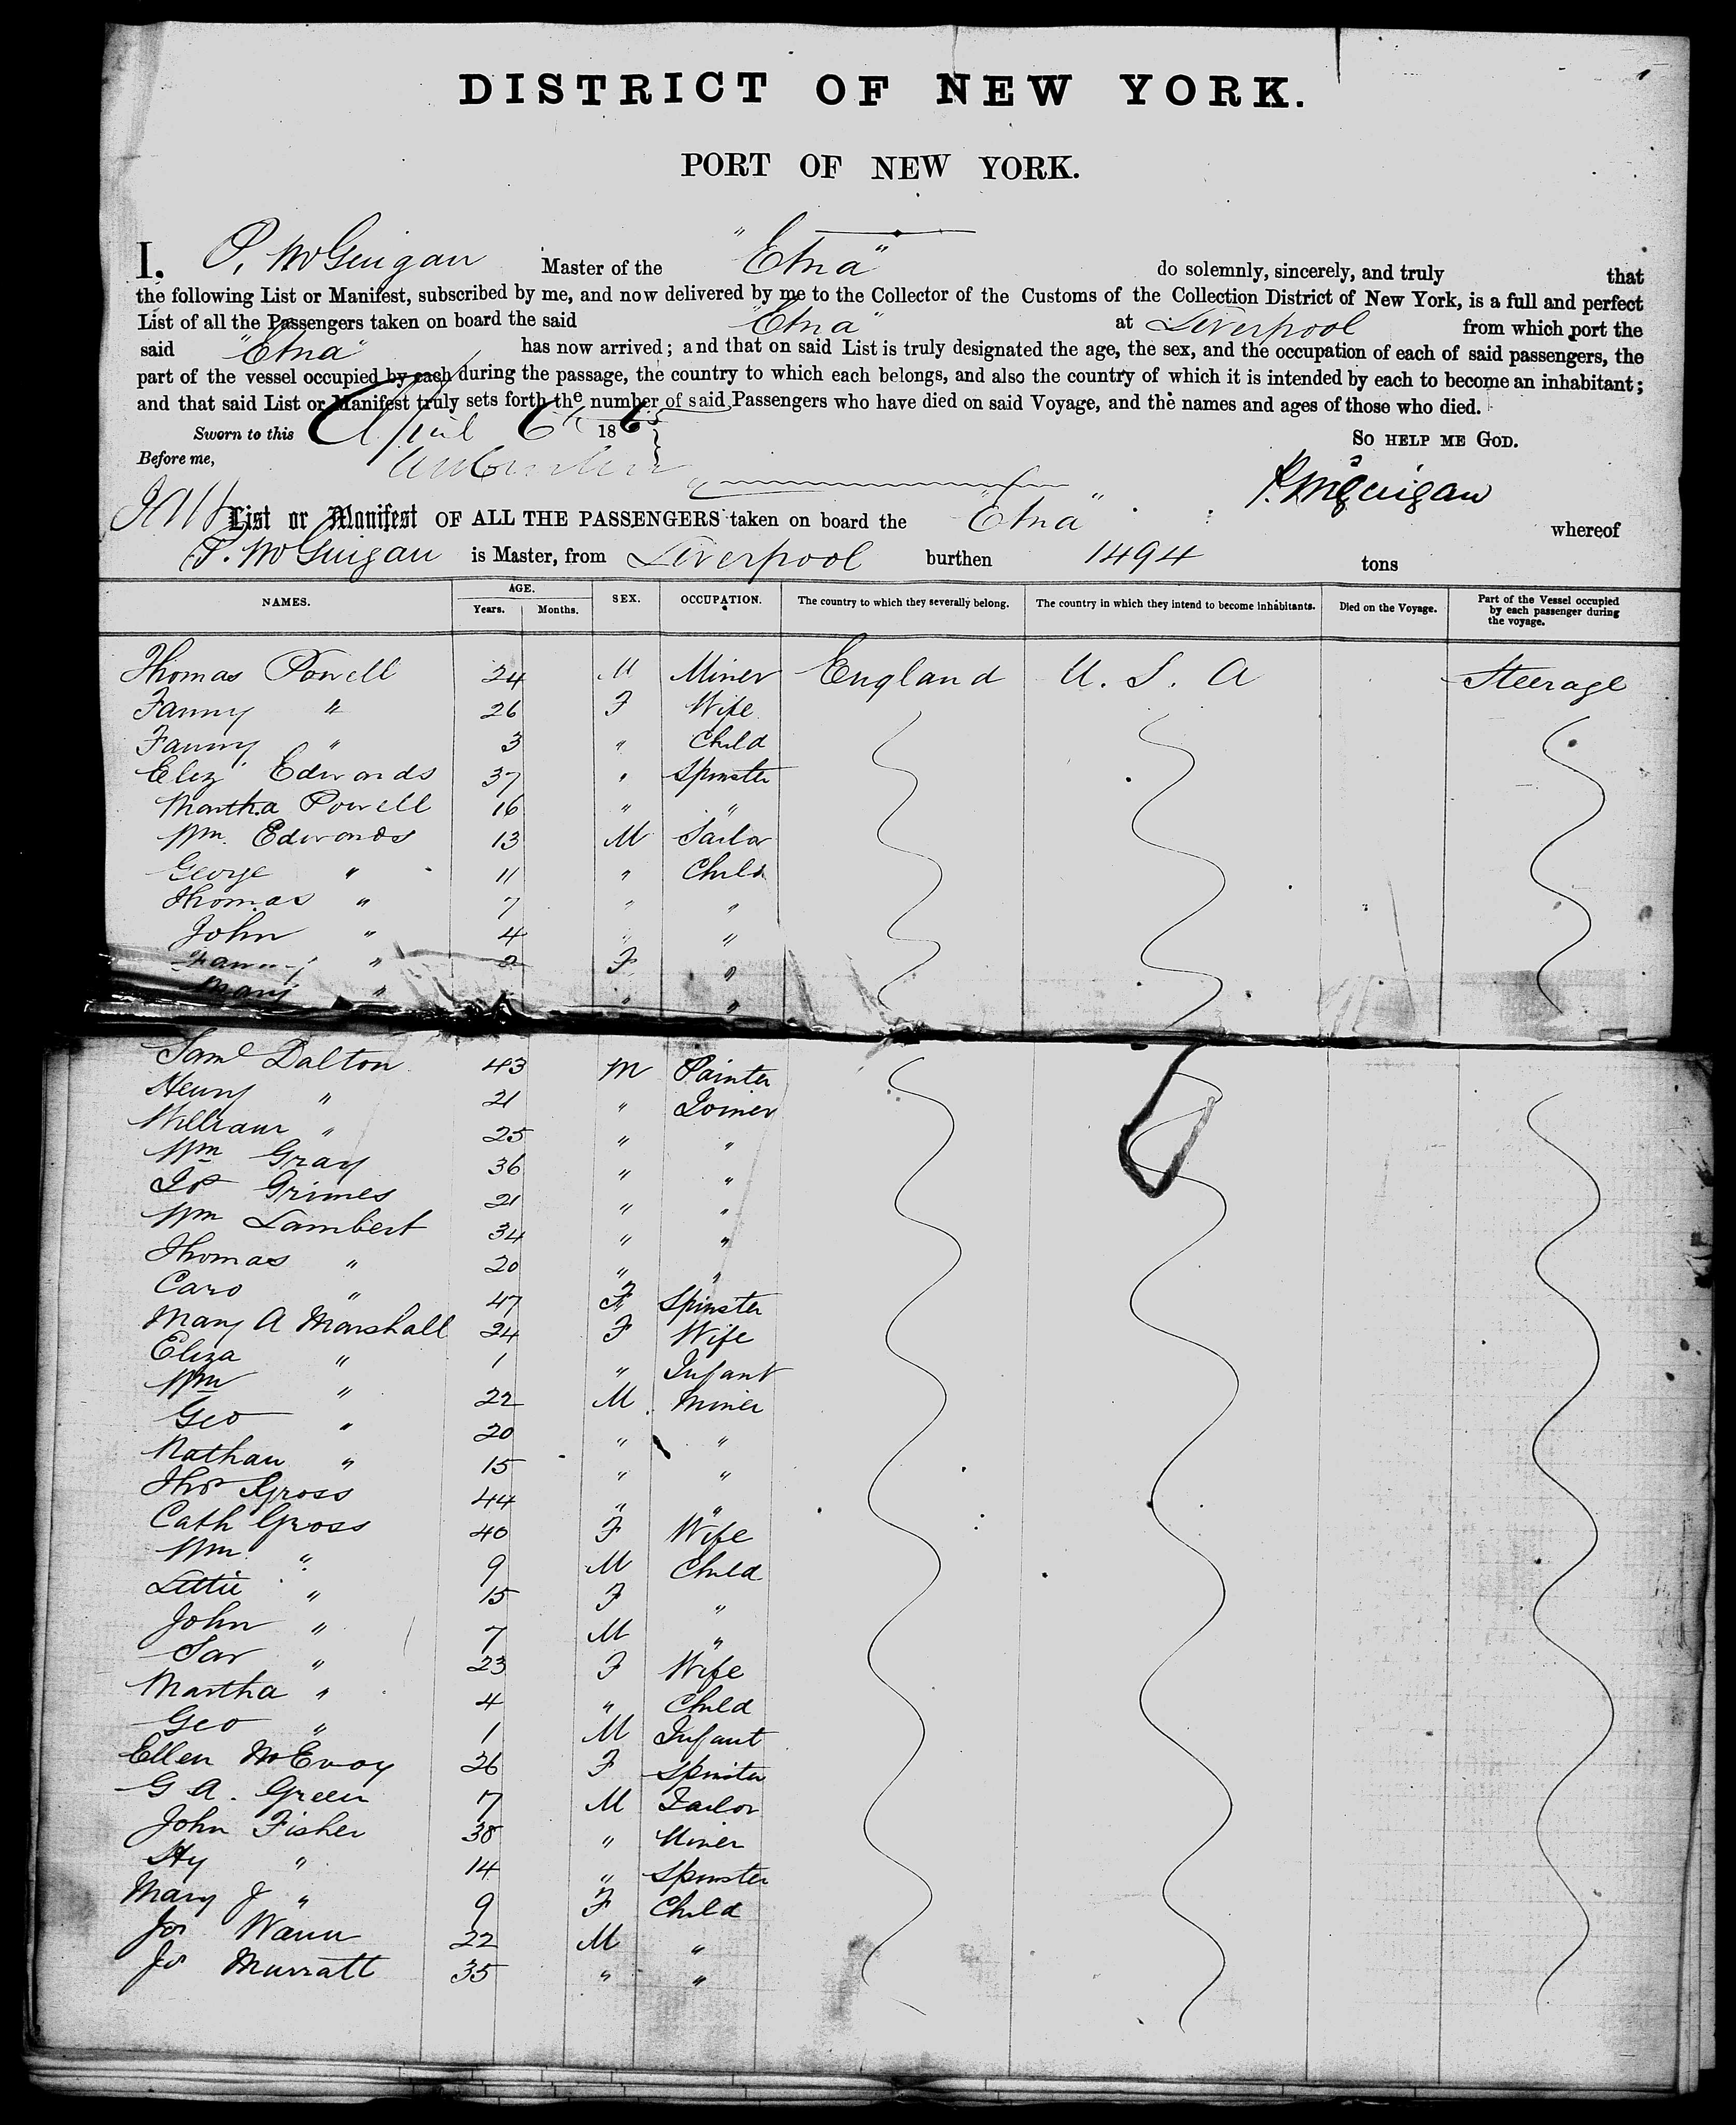 DISTRICT OF NEW YORK.
PORT OF NEW YORK.
I, P. McGuigan Master of the "Etna" do solemnly, sincerely, and truly that
the following List or Manifest, subscribed by me, and now delivered by me to the Collector of the Customs of the Collection District of New York, is a full and perfect
List of all the Passengers taken on board the said "Etna" at Liverpool from which port the
said "Etna" has now arrived; and that on said List is truly designated the age, the sex, and the occupation of each of said passengers, the
part of the vessel occupied by each during the passage, the country to which each belongs, and also the country of which it is intended by each to become an inhabitant;
and that said List or Manifest truly sets forth the number of said Passengers who have died on said Voyage, and the names and ages of those who died.
Sworn to this April 6th 186 SO HELP ME GOD.
Before me, P. McGuigan
List or Manifest OF ALL THE PASSENGERS taken on board the "Etna" whereof
P. McGuigan is Master, from Liverpool burthen 1494 tons
NAMES. AGE. Years. Months. SEX. OCCUPATION. The country to which they severally belong. The country in which they intend to become inhabitants. Died on the Voyage. Part of the Vessel occupied by each passenger during the voyage.
Thomas Powell 24 M Miner England U. S. A Steerage
Fanny " 26 F Wife
Fanny " 3 " Child
Eliz Edwards 37 " Spinster
Martha Powell 16 " "
Wm. Edwards 13 M Tailor
George " 11 " Child
Thomas " 7 " "
John " 4 " "
Fanny " 2 F "
Mary " " "
Saml Dalton 43 M Painter
Henry " 21 " Joiner
William " 25 " "
Wm Gray 36 " "
Jos Grimes 21 " "
Wm Lambert 34 " "
Thomas " 20 " "
Caro " 47 F Spinster
Mary A Marshall 24 F Wife
Eliza " 1 " Infant
Wm " 22 M Miner
Geo " 20 " "
Nathan " 15 " "
Thos Gross 44 " "
Cath Gross 40 F Wife
Wm " 9 M Child
Lettie " 15 F "
John " 7 M "
Sar " 23 F Wife
Martha " 4 " Child
Geo " 1 M Infant
Ellen McEvoy 26 F Spinster
G A. Green 17 M Tailor
John Fisher 38 " Miner
Hy " 14 " Spinster
Mary J " 9 F Child
Jos Wann 22 M "
Js Murratt 35 " "